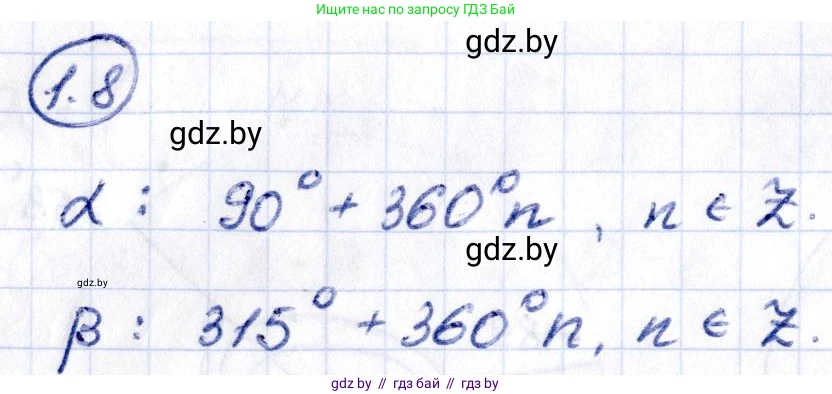 Ищите нас по запросу ГДЗ Бай
gdz.by
1.8
gdz.by
α : 90° + 360°n , n ∈ Z.
gdz.by
gdz.by
β : 315° + 360°n, n ∈ Z.
gdz.by // гдз бай // гдз by